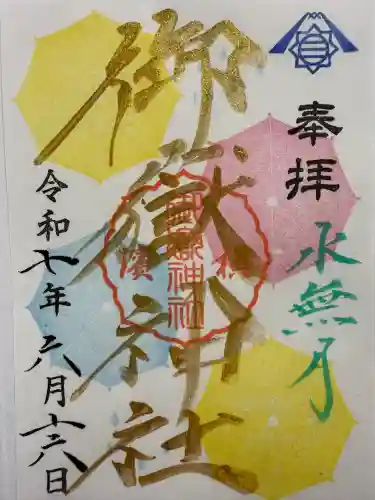 奉拝
水無月
御嶽神社
御嶽神社
令和七年六月十六日